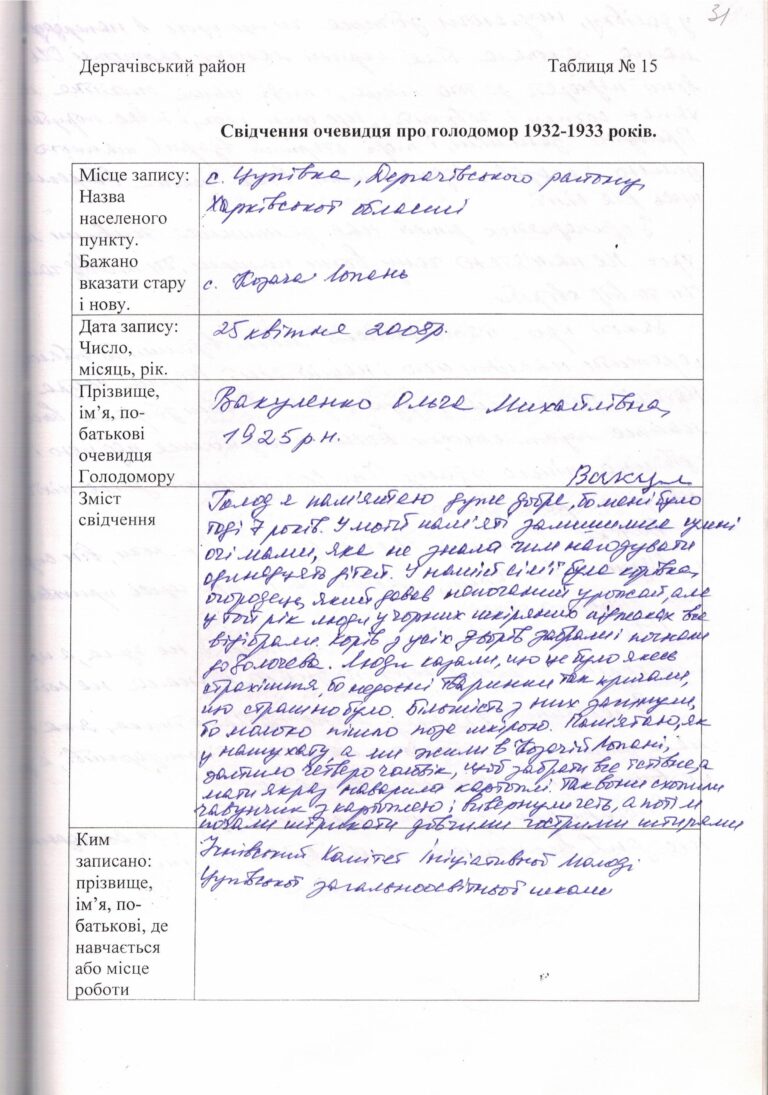 31
Дергачівський район Таблиця № 15
Свідчення очевидця про голодомор 1932-1933 років.
Місце запису:
Назва
населеного
пункту.
Бажано
вказати стару
і нову.
с. Цупівка, Дергачівського району,
Харківської області
с. Козача Лопань
Дата запису:
Число,
місяць, рік.
25 квітня 2008р.
Прізвище,
ім’я, по-
батькові
очевидця
Голодомору
Вакуленко Ольга Михайлівна,
1925 р.н.
Вакул
Зміст
свідчення
Голод я пам'ятаю дуже добре, бо мені було
тоді 7 років. У моїй пам'яті залишилися сумні
очі мами, яка не знала чим нагодувати
одинадцять дітей. У нашій сім'ї була корівка,
огородець, який давав непоганий урожай, але
у той рік люди у чорних шкіряних піджаках все
відібрали. Корів з усіх дворів забрали і погнали
до Волочева. Люди казали, що це було якесь
страхіття, бо недоєні тваринки так кричали,
що страшно було. Більшість з них загинули,
бо молоко пішло поза шкірою. Пам'ятаю, як
у нашу хату, а ми жили в Козачій Лопані,
четверо чоловік, щоб забрати все їстівне, а
мати якраз наварила картоплі. Так вони схопили
чавунчик з картоплею і вивернули геть, а потім
почали штрикати довгими гострими штирями
Ким
записано:
прізвище,
ім’я, по-
батькові, де
навчається
або місце
роботи
Учнівський Комітет Ініціативної Молоді
Цупівської загальноосвітньої школи